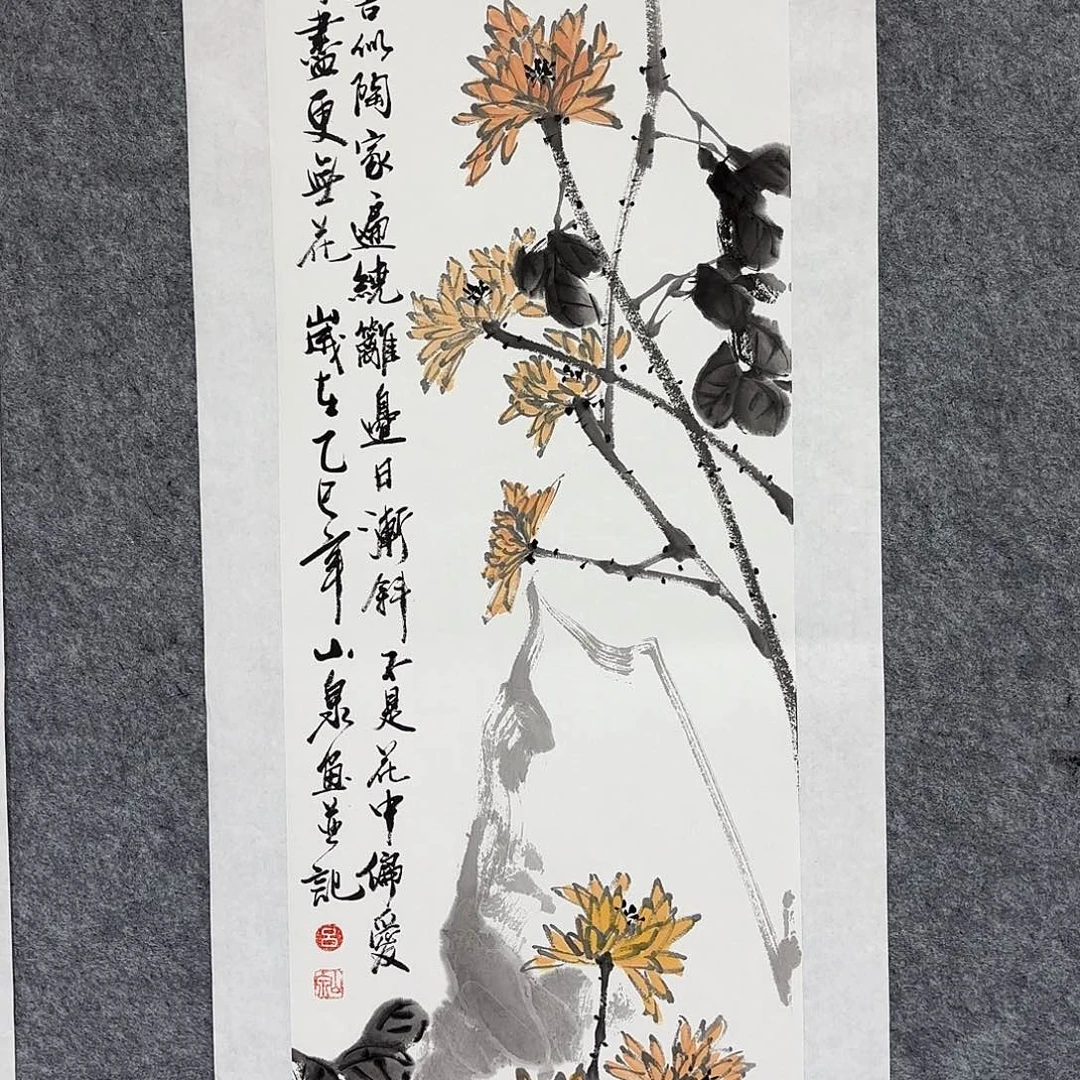 似陶家遍繞籬邊日漸斜不是花中偏愛
盡更無花 歲在乙巳年山泉畫並記
呂